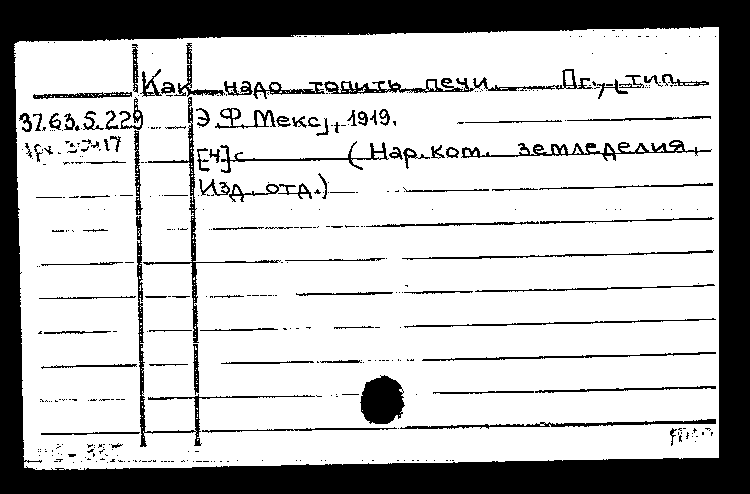 Как надо топить печи. Пг., [тип.
37.63.5.229
Э.Ф. Мекс], 1919.
[4] с (Нар. ком. земледелия.
Изд. отд.)